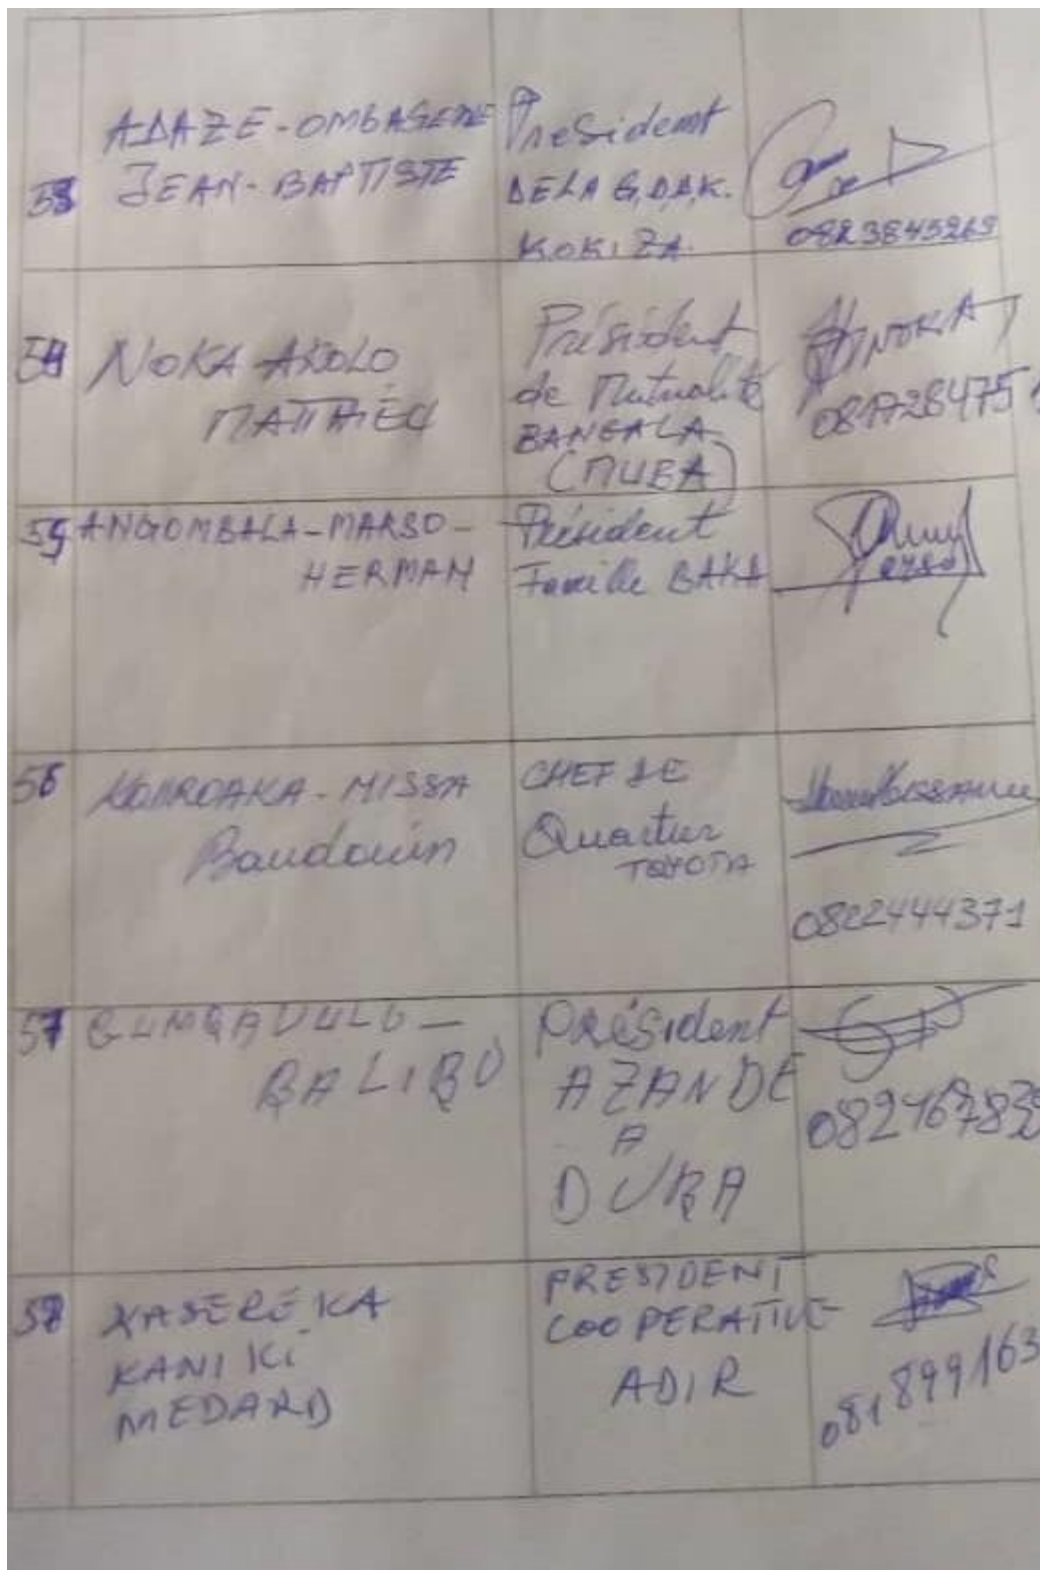 53
ADAZE-OMBASENE
JEAN-BAPTISTE
President
DE LA G.D.A.K.
KOKIZA.
0823845269
54
NOKA AKOLO
MATTHIEU
Président
de Mutualité
BANGALA
(MUBA)
NOKA
55
ANGOMBALA-MARSO-
HERMAN
Président
Famille BAKA
56
MISSA
Baudouin
CHEF DE
Quartier
TOYOTA
0822444371
57
BALIBO
Président
AZANDE
A
DUBA
58
KASEREKA
KANIKI
MEDARD
PRESIDENT
COOPERATIVE
ADIR
081899163